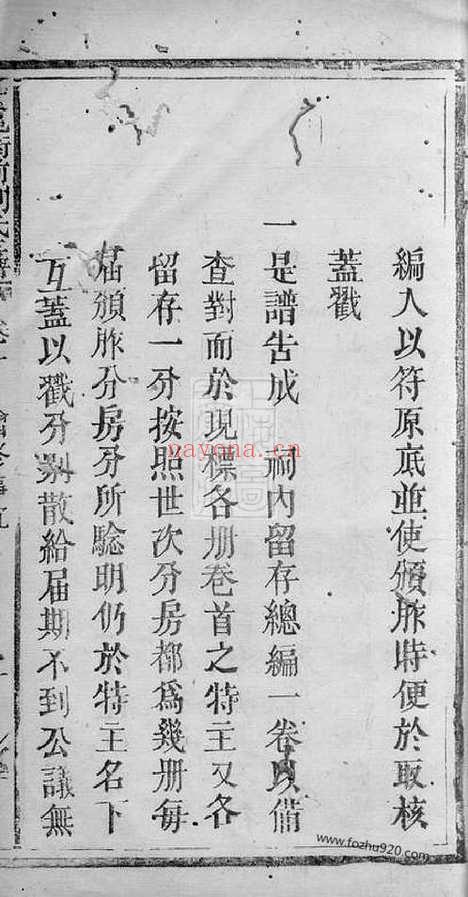 編入以符原底並使頒胙時便於取核
蓋戳
一是譜告成 祠內留存總編一卷以備
查對而於現標各册卷首之特主又各
留存一分按照世次分房都為幾册每
屆頒胙分房分所驗明仍於特主名下
互蓋以戳分別散給屆期不到公議無
nayona.cn
www.fozhu920.com